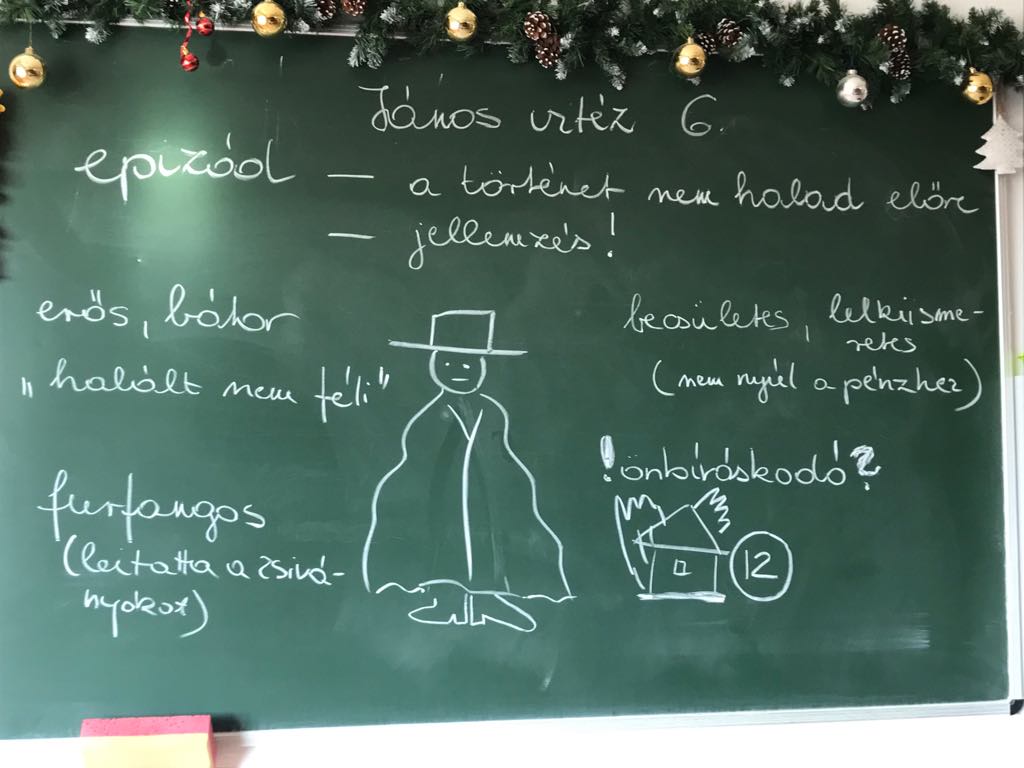 János vitéz 6.
epizód — a történet nem halad előre
— jellemzés!
erős, bátor
"halált nem féli"
furfangos
(leitatta a zsivá-
nyokat)
becsületes, lelkiisme-
retes
(nem nyúl a pénzhez)
!önbíráskodó?
12